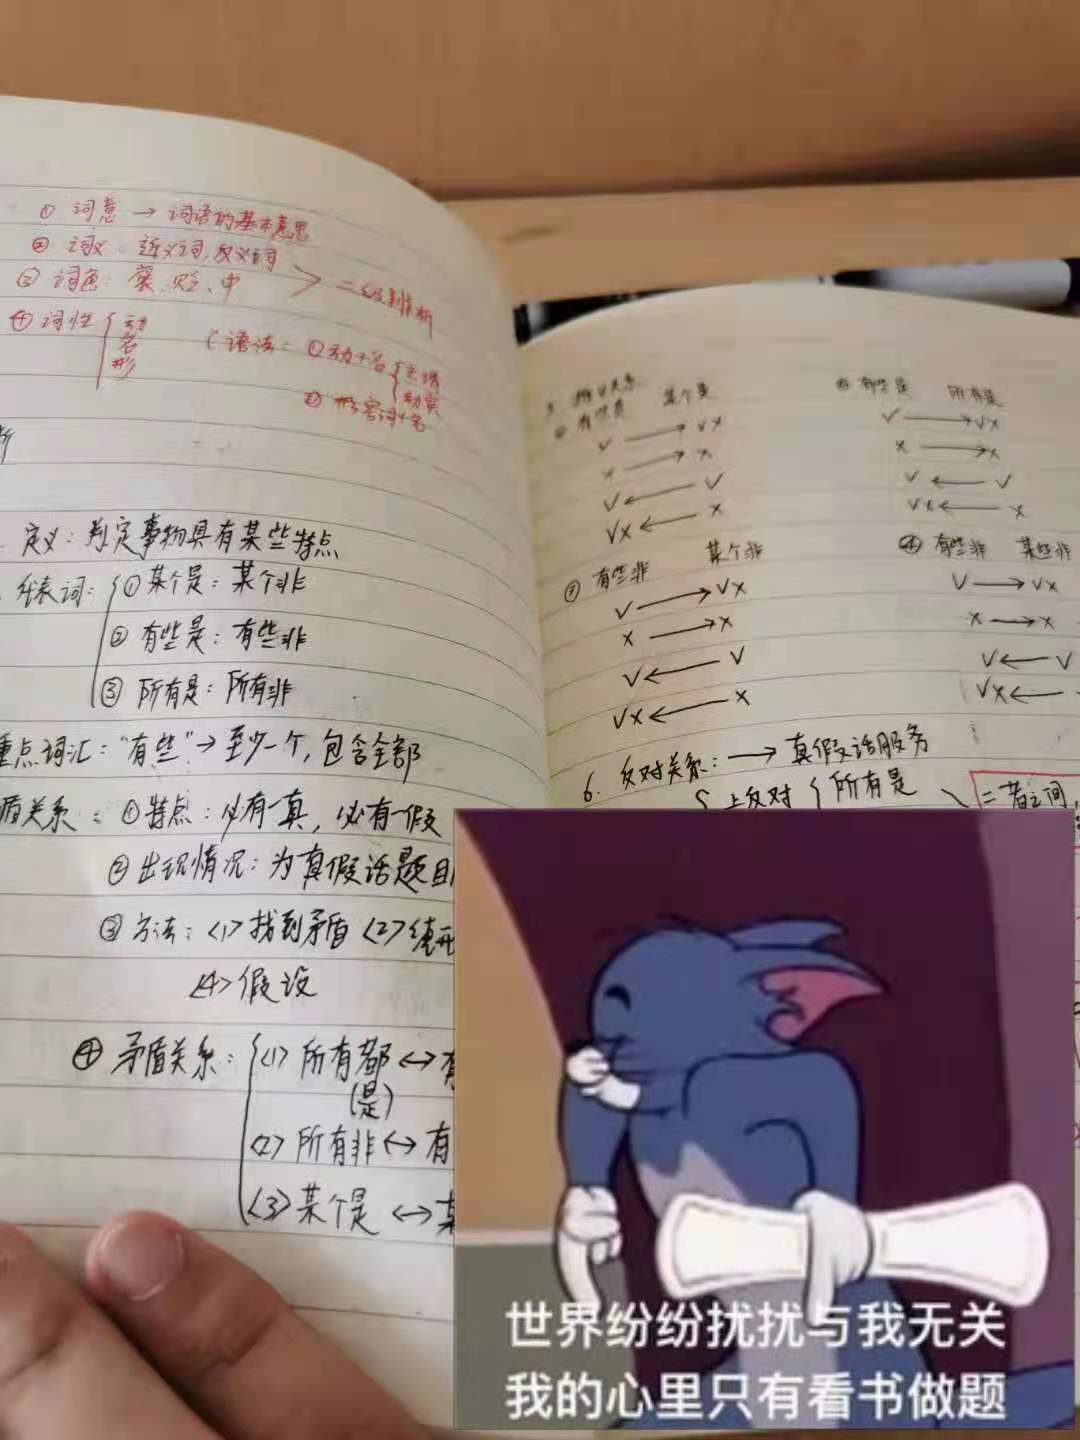 ① 词意 → 词语的基本意思
② 词义：近义词,反义词
③ 词色：褒、贬、中
④ 词性 { 动
名
形
语法：① 动+名
② 形容词+名
定义：判定事物具有某些特点
代表词：{ ① 某个是：某个非
② 有些是：有些非
③ 所有是：所有非
重点词汇："有些"→至少一个,包含全部
盾关系：① 特点：必有一真，必有一假
② 出现情况：为真假话题目
③ 方法：<1>找到矛盾 <2>
<4>假设
④ 矛盾关系：{ <1> 所有都 ↔ 有
(是)
<2> 所有非 ↔ 有
<3> 某个是 ↔ 某
某个是
√ → √×
× → ×
√ ← √
√× ← ×
有些是 所有是
√ → √×
× → ×
√ ← √
√× ← ×
有些非 某个非
√ → √×
× → ×
√ ← √
√× ← ×
④ 有些非 某些非
√ → √×
× → ×
√ ← √
√× ← ×
6. 反对关系：→ 真假话服务
上反对 { 所有是
二者之间
世界纷纷扰扰与我无关
我的心里只有看书做题